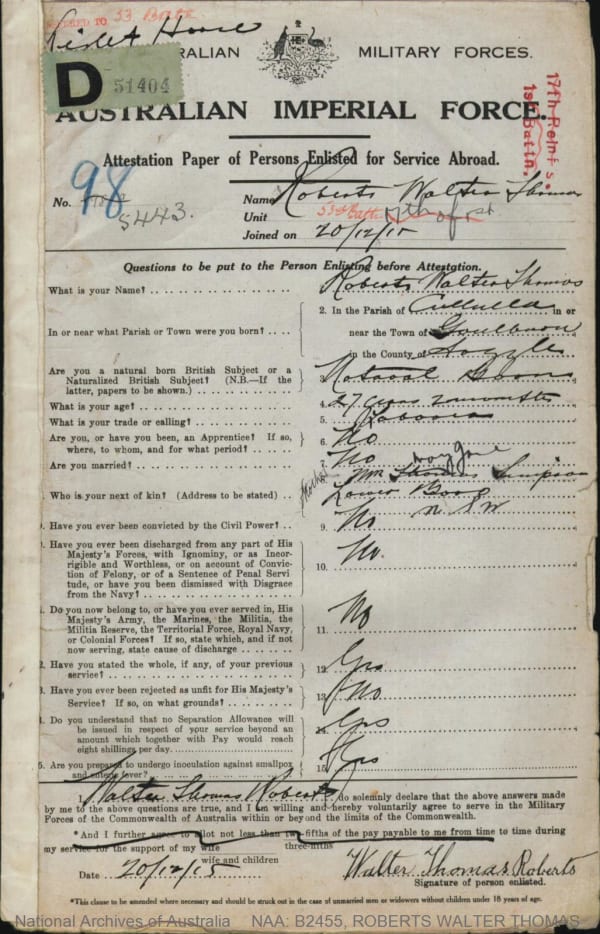 53 Batt
AUSTRALIAN MILITARY FORCES.
D 51404
AUSTRALIAN IMPERIAL FORCE.
17th Reinfts.
1st Battn.
Attestation Paper of Persons Enlisted for Service Abroad.
No. 98
5443.
Name Roberts Walter Thomas
Unit 53rd Battn 17th of 1st
Joined on 20/12/15
Questions to be put to the Person Enlisting before Attestation.
What is your Name? Roberts Walter Thomas
In or near what Parish or Town were you born?
2. In the Parish of Cullulla in or
near the Town of Goulburn
in the County of Argyle
Are you a natural born British Subject or a
Naturalized British Subject? (N.B.—If the
latter, papers to be shown.)
3. Natural Born
What is your age? 4. 27 years months
What is your trade or calling? 5. Labourer
Are you, or have you been, an Apprentice? If so,
where, to whom, and for what period?
6. No
Are you married? 7. No
Who is your next of kin? (Address to be stated)
8. Mother Mrs Simpson
Lower Boro
N S W
. Have you ever been convicted by the Civil Power? 9. No
. Have you ever been discharged from any part of His
Majesty's Forces, with Ignominy, or as Incor-
rigible and Worthless, or on account of Convic-
tion of Felony, or of a Sentence of Penal Servi
tude, or have you been dismissed with Disgrace
from the Navy?
10. No.
. Do you now belong to, or have you ever served in, His
Majesty's Army, the Marines, the Militia, the
Militia Reserve, the Territorial Force, Royal Navy,
or Colonial Forces? If so, state which, and if not
now serving, state cause of discharge
11. No
2. Have you stated the whole, if any, of your previous
service?
12. Yes
3. Have you ever been rejected as unfit for His Majesty's
Service? If so, on what grounds?
13. No
. Do you understand that no Separation Allowance will
be issued in respect of your service beyond an
amount which together with Pay would reach
eight shillings per day.
14. Yes
5. Are you prepared to undergo inoculation against smallpox
and enteric fever?
15. Yes
I, Walter Thomas Roberts, do solemnly declare that the above answers made
by me to the above questions are true, and I am willing and hereby voluntarily agree to serve in the Military
Forces of the Commonwealth of Australia within or beyond the limits of the Commonwealth.
*And I further agree to allot not less than two-fifths of the pay payable to me from time to time during
three-fifths
my service for the support of my wife
wife and children
Date 20/12/15
Walter Thomas Roberts
Signature of person enlisted.
*This clause to be amended where necessary and should be struck out in the case of unmarried men or widowers without children under 18 years of age.
National Archives of Australia NAA: B2455, ROBERTS WALTER THOMAS